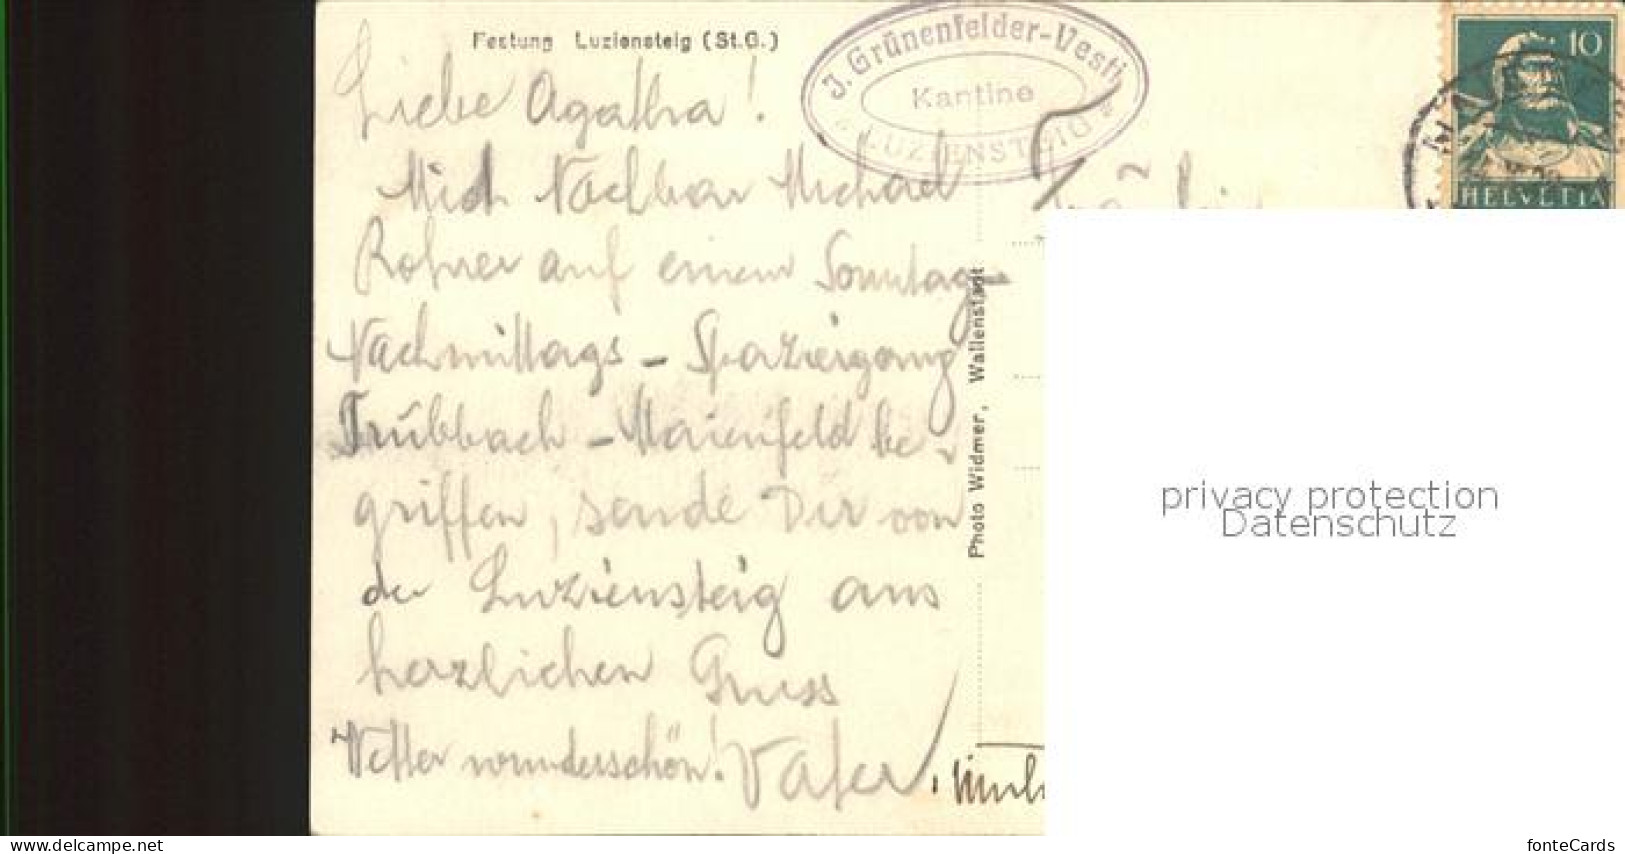 Festung Luziensteig (St.G.)
J. Grünenfelder-Vesti
Kantine
LUZIENSTEIG
10
HELVETIA
Liebe Agatha!
Mich Nachbar Michael
Rohrer auf einem Sonntag-
Nachmittags - Spaziergang
Trübbach - Maienfeld be-
griffen, sende Dir von
der Luziensteig aus
herzlichen Gruss
Wetter wunderschön! Vater.
Photo Widmer, Wallenstadt
privacy protection
Datenschutz
www.delcampe.net
fonteCards